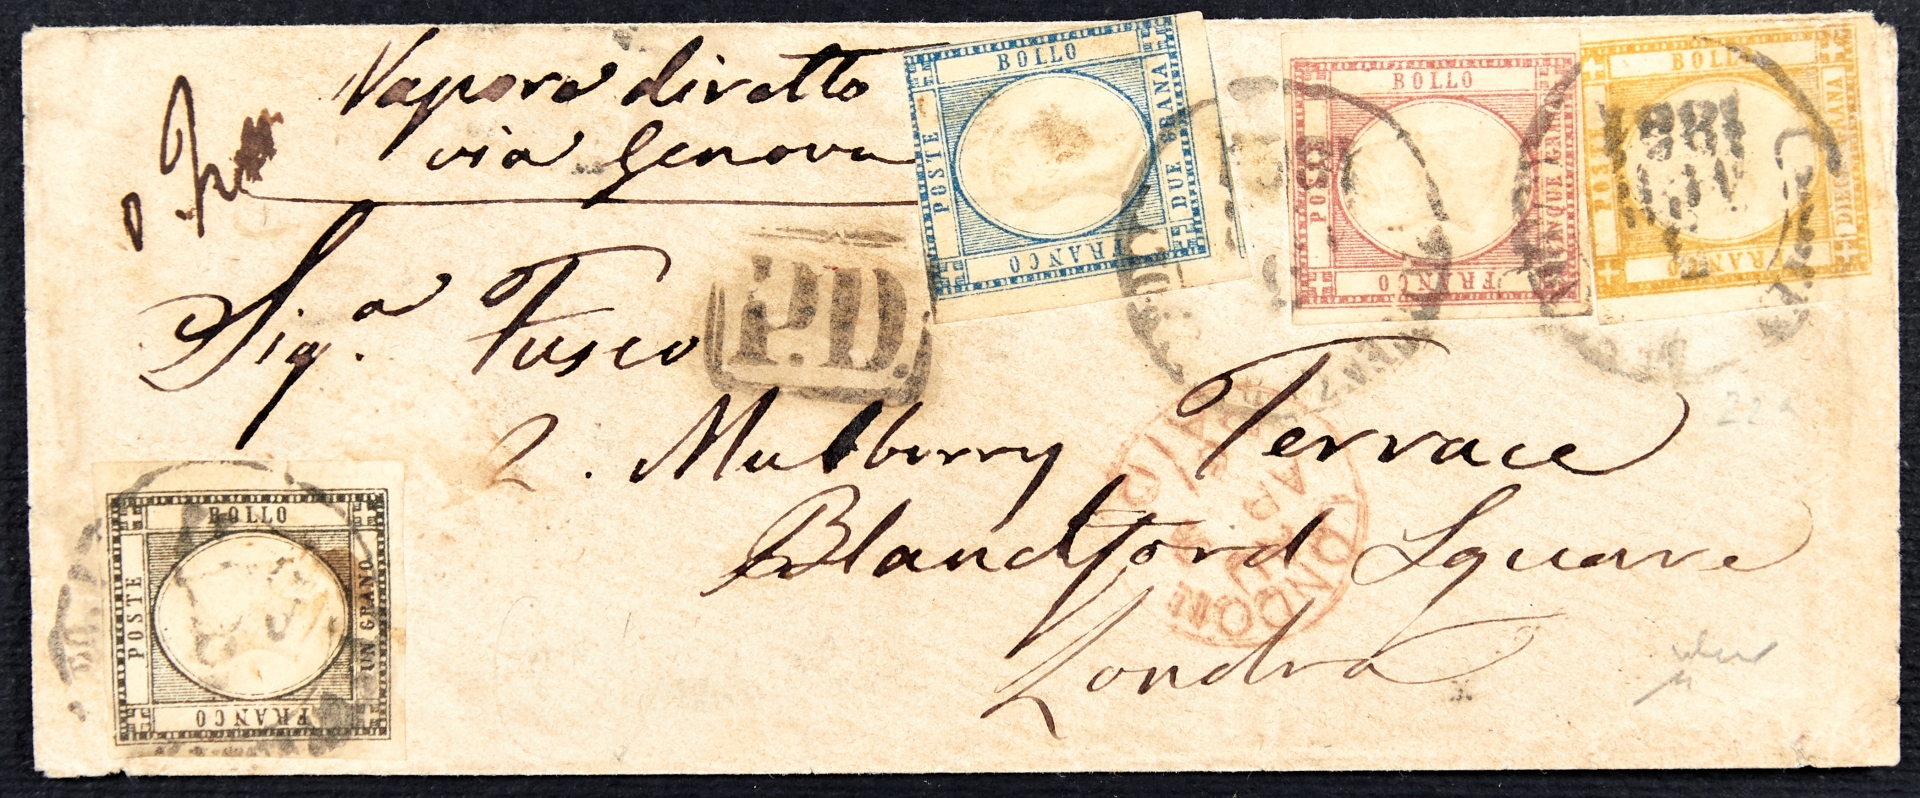 Vapore diretto
via Genova
BOLLO
POSTE
DUE GRANA
FRANCO
BOLLO
POSTE
CINQUE GRANA
FRANCO
BOLLO
POSTE
DIECI GRANA
FRANCO
P.D.
Sig.a Fusco
2. Mulberry Terrace
Blandford Square
Londra
LONDON
PAID
BOLLO
POSTE
UN GRANO
FRANCO
22a